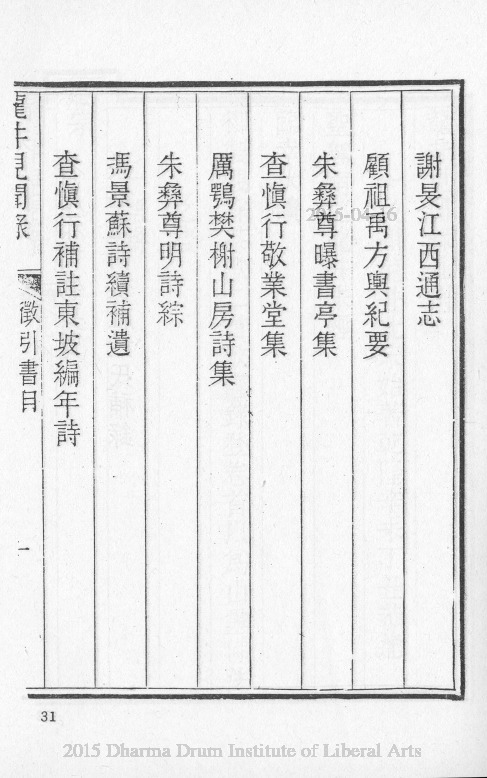 謝旻江西通志
顧祖禹方輿紀要
朱彝尊曝書亭集
查慎行敬業堂集
厲鶚樊榭山房詩集
朱彝尊明詩綜
馮景蘇詩續補遺
查慎行補註東坡編年詩
龍井見聞錄
徵引書目
一
31
2015 Dharma Drum Institute of Liberal Arts